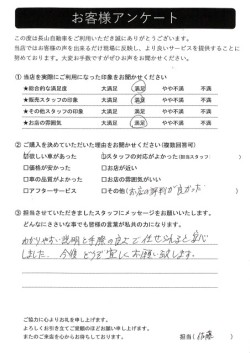 お客様アンケート
この度は長山自動車をご利用いただき誠にありがとうございます。
当店ではお客様の声を出来るだけ現場に反映し、より良いサービスを提供することに
努めております。大変お手数ですがぜひお声をお聞かせください。
① 当店を実際にご利用になった印象をお聞かせください
★総合的な満足度 大満足 満足 やや不満 不満
★販売スタッフの印象 大満足 満足 やや不満 不満
★その他スタッフの印象 大満足 満足 やや不満 不満
★お店の雰囲気 大満足 満足 やや不満 不満
② ご購入を決めていただいた理由をお聞かせください(複数回答可)
☑欲しい車があった ☑スタッフの対応がよかった(担当スタッフ )
□価格が安かった □お店が近い
□車の品質がよかった □お店の雰囲気
□アフターサービス □その他(お店の評判が良かった )
③ 担当させていただきましたスタッフにメッセージをお願いいたします。
どんなにささいな事でも皆様の言葉が私共の力になります。
わかりやすい説明と手際の良さで任せられると安心
しました。今後とも宜しくお願い致します。
ご協力に心よりお礼を申し上げます。
よろしくお引き立てご愛顧のほどお願い申し上げます。
またのご来店を心からお待ちしております。 担当( )